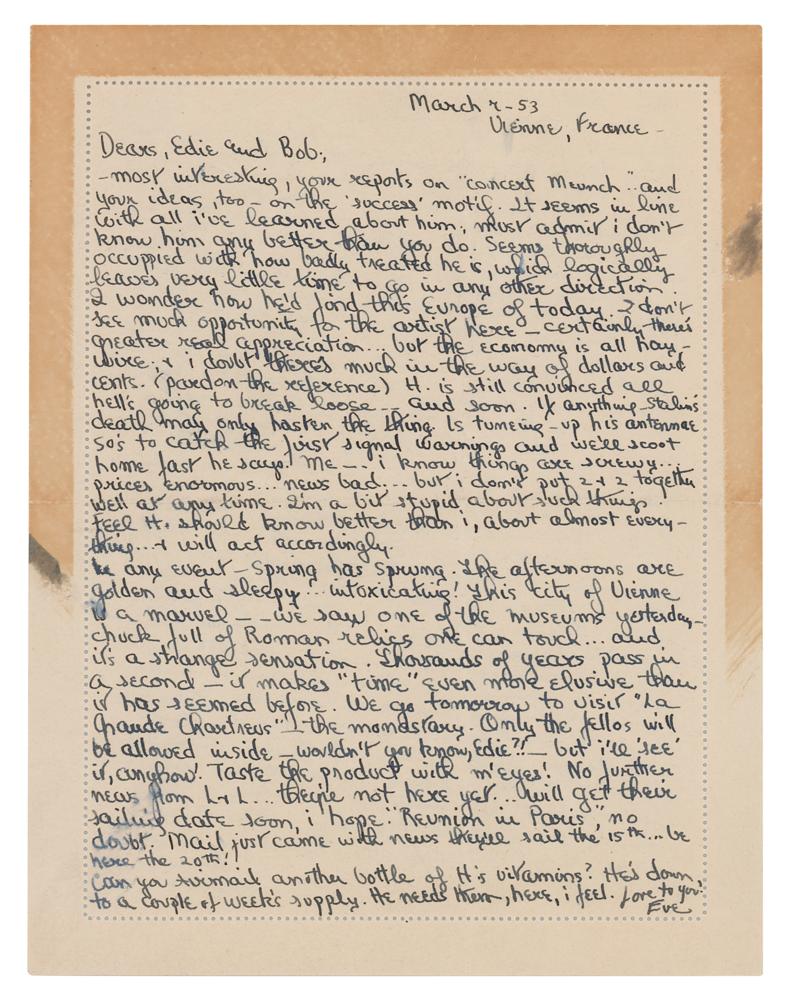 March 7-53
Vienne, France -
Dears, Edie and Bob;,
-most interesting, your reports on "concert Meunch" and
your ideas, too - on the 'success' motif. It seems in line
with all i've learned about him, must admit i don't
know him any better than you do. Seems thoroughly
occupied with how badly treated he is, which logically
leaves very little time to go in any other direction.
I wonder how he'd find this Europe of today. I don't
see much opportunity for the artist here - certainly there's
greater real appreciation... but the economy is all hay-
wire, & i doubt there's much in the way of dollars and
cents. (pardon the reference) H. is still convinced all
hell's going to break loose -- and soon. If anything - Stalin's
death may only hasten the thing. Is tuneing-up his antennae
so's to catch the first signal warnings and we'll scoot
home fast he says. Me -- i know things are screwy...
prices enormous... news bad... but i don't put 2 & 2 together
well at any time. I'm a bit stupid about such things.
feel H. should know better than i, about almost every-
thing... & will act accordingly.
In any event - Spring has sprung. The afternoons are
golden and sleepy... intoxicating! This city of Vienne
is a marvel -- we saw one of the museums yesterday -
chuck full of Roman relics one can touch... and
it's a strange sensation. Thousands of years pass in
a second - it makes "time" even more elusive than
it has seemed before. We go tomorrow to visit "La
Grande Chartreus" - the monastary. Only the fellos will
be allowed inside - wouldn't you know, Edie?! - but i'll 'see'
it, anyhow! Taste the product with m'eyes! No further
news from L & L... they're not here yet... will get their
sailing date soon, i hope. "Reunion in Paris", no
doubt. Mail just came with news they'll sail the 15th... be
here the 20th!!
Can you airmail another bottle of H's vitamins? He's down
to a couple of week's supply. He needs them, here, i feel. Love to you!
Eve